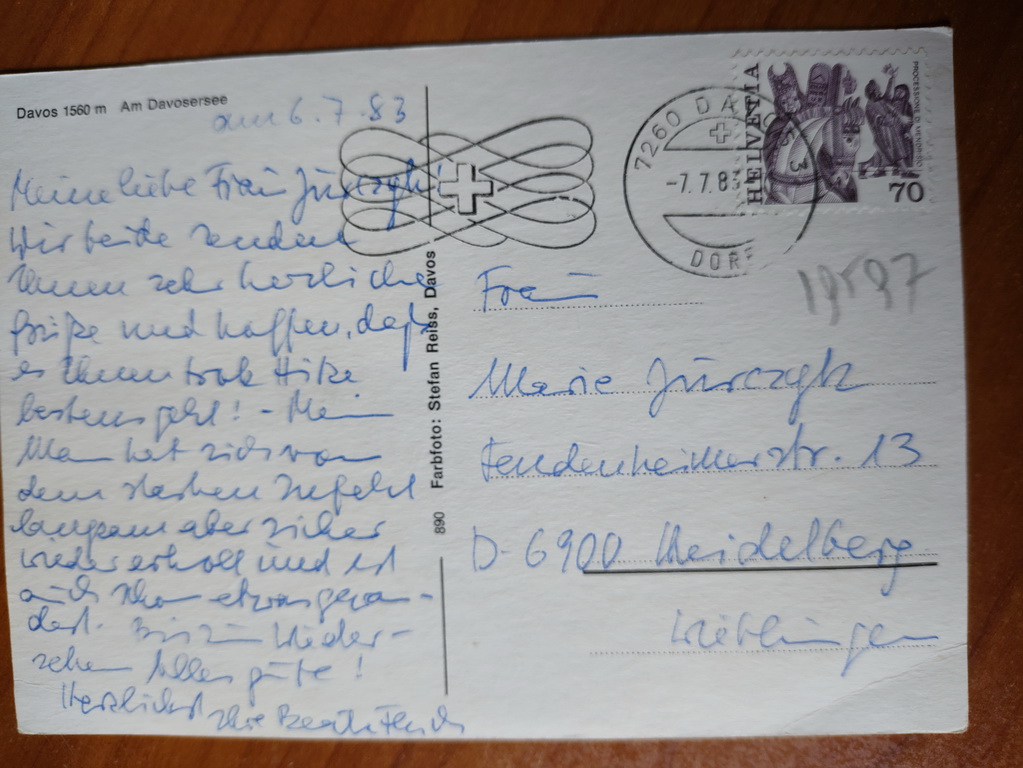 Davos 1560 m Am Davosersee
am 6.7.83
Meine liebe Frau Jurczyk!
Wir beide senden
Ihnen sehr herzliche
Grüße und hoffen, daß
es Ihnen trotz Hitze
bestens geht! - Mein
Mann hat sich von
dem starken
langsam aber sicher
wieder erholt und ist
auch schon etwas gewan-
dert. Bis zum Wieder-
sehen Alles gute!
Herzlichst
Ihre
890 Farbfoto: Stefan Reiss, Davos
7260 DAVOS
-7.7.83
DORF
HELVETIA
PROCESSIONE DI MENDRISIO
70
19597
Frau
Marie Jurczyk
13
D-6900 Heidelberg
Wieblingen